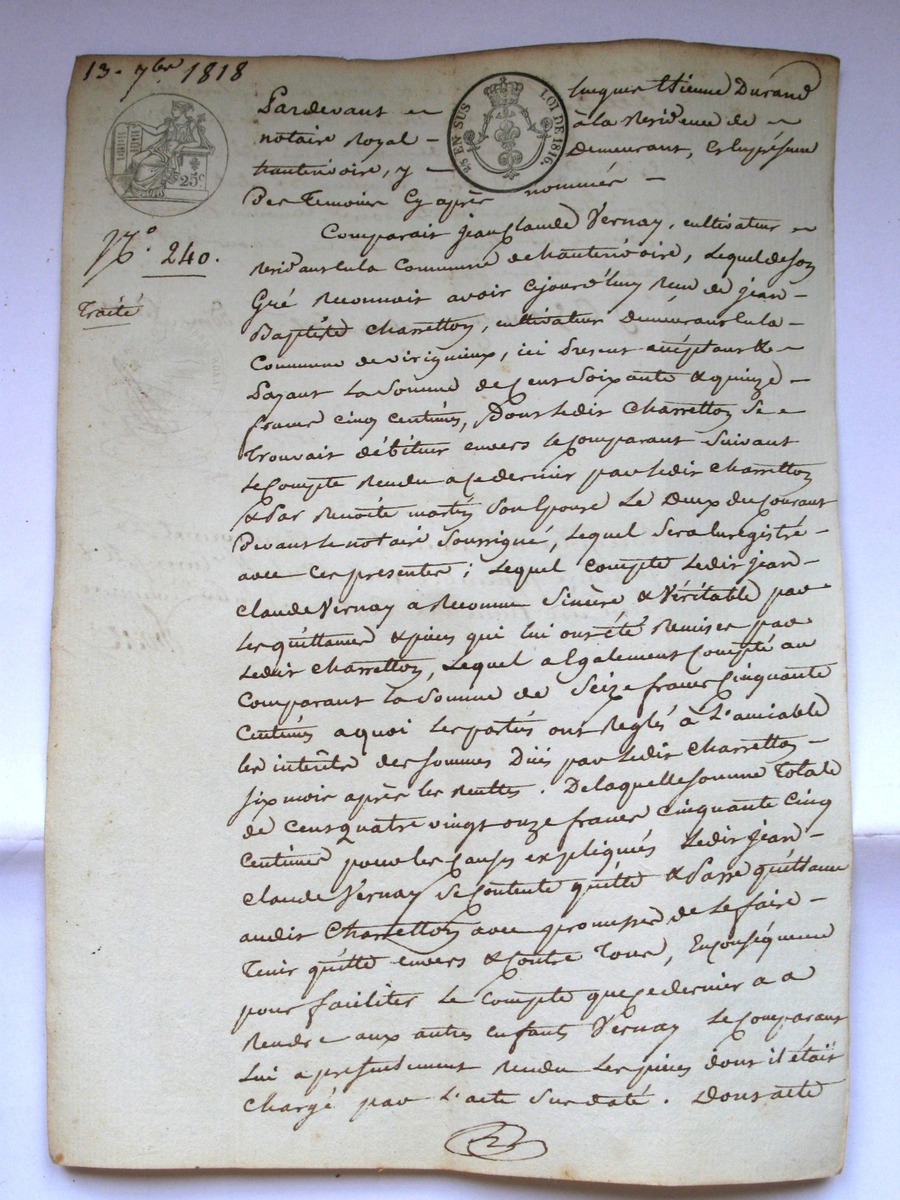 13. 7bre 1818
25 EN SUS LOI DE 1816.
25c
Pardevant Jacques Etienne Durand
notaire Royal à la Residence de
hauterivoire, y Demeurant, En présence
Des Temoins Cy après nommés
N.° 240.
Traité
Comparait jean Claude Vernay, cultivateur
residant en la Commune de hauterivoire, Lequel de Son
Gré Reconnait avoir cejourd'huy Recu de jean
Baptiste Charretton, cultivateur demeurant en la
Commune de virigneux, ici Present acceptant &
Payant La Somme de Cent Soixante & quinze
francs cinq centimes, Dont Ledit Charretton Se
Trouvait débiteur envers le Comparant Suivant
Le Compte Rendu a ce dernier par Ledit Charretton
& Par Benoite martin Son Epouse Le Deux du Courant
Devant Le notaire Soussigné, Lequel Sera Enregistré
avec Ces presentes ; Lequel Compte Ledit jean
Claude Vernay a Reconnu Sincère & Véritable par
Les quittances & pièces qui lui ont été Remises par
Ledit Charretton, Lequel a Egalement Compté au
Comparant La Somme de Seize francs Cinquante
Centimes a quoi Les parties ont Reglés à L'amiable
les interêts des Sommes Dües par Ledit Charretton
Six mois après les Ventes. De laquelle Somme Totale
de Cent quatre vingt onze francs Cinquante Cinq
Centimes pour les Causes expliquées Ledit jean
Claude Vernay Se Contente quitte & Passe quittance
audit Charretton avec promesse de Le faire
Tenir quitte envers & Contre Tous, En Conséquence
pour faciliter Le Compte que Ce dernier a a
Rendre aux autres enfants Vernay Le Comparant
Lui a présentement Rendu Les pièces dont il était
Chargé par L'acte Sus daté. Dont acte